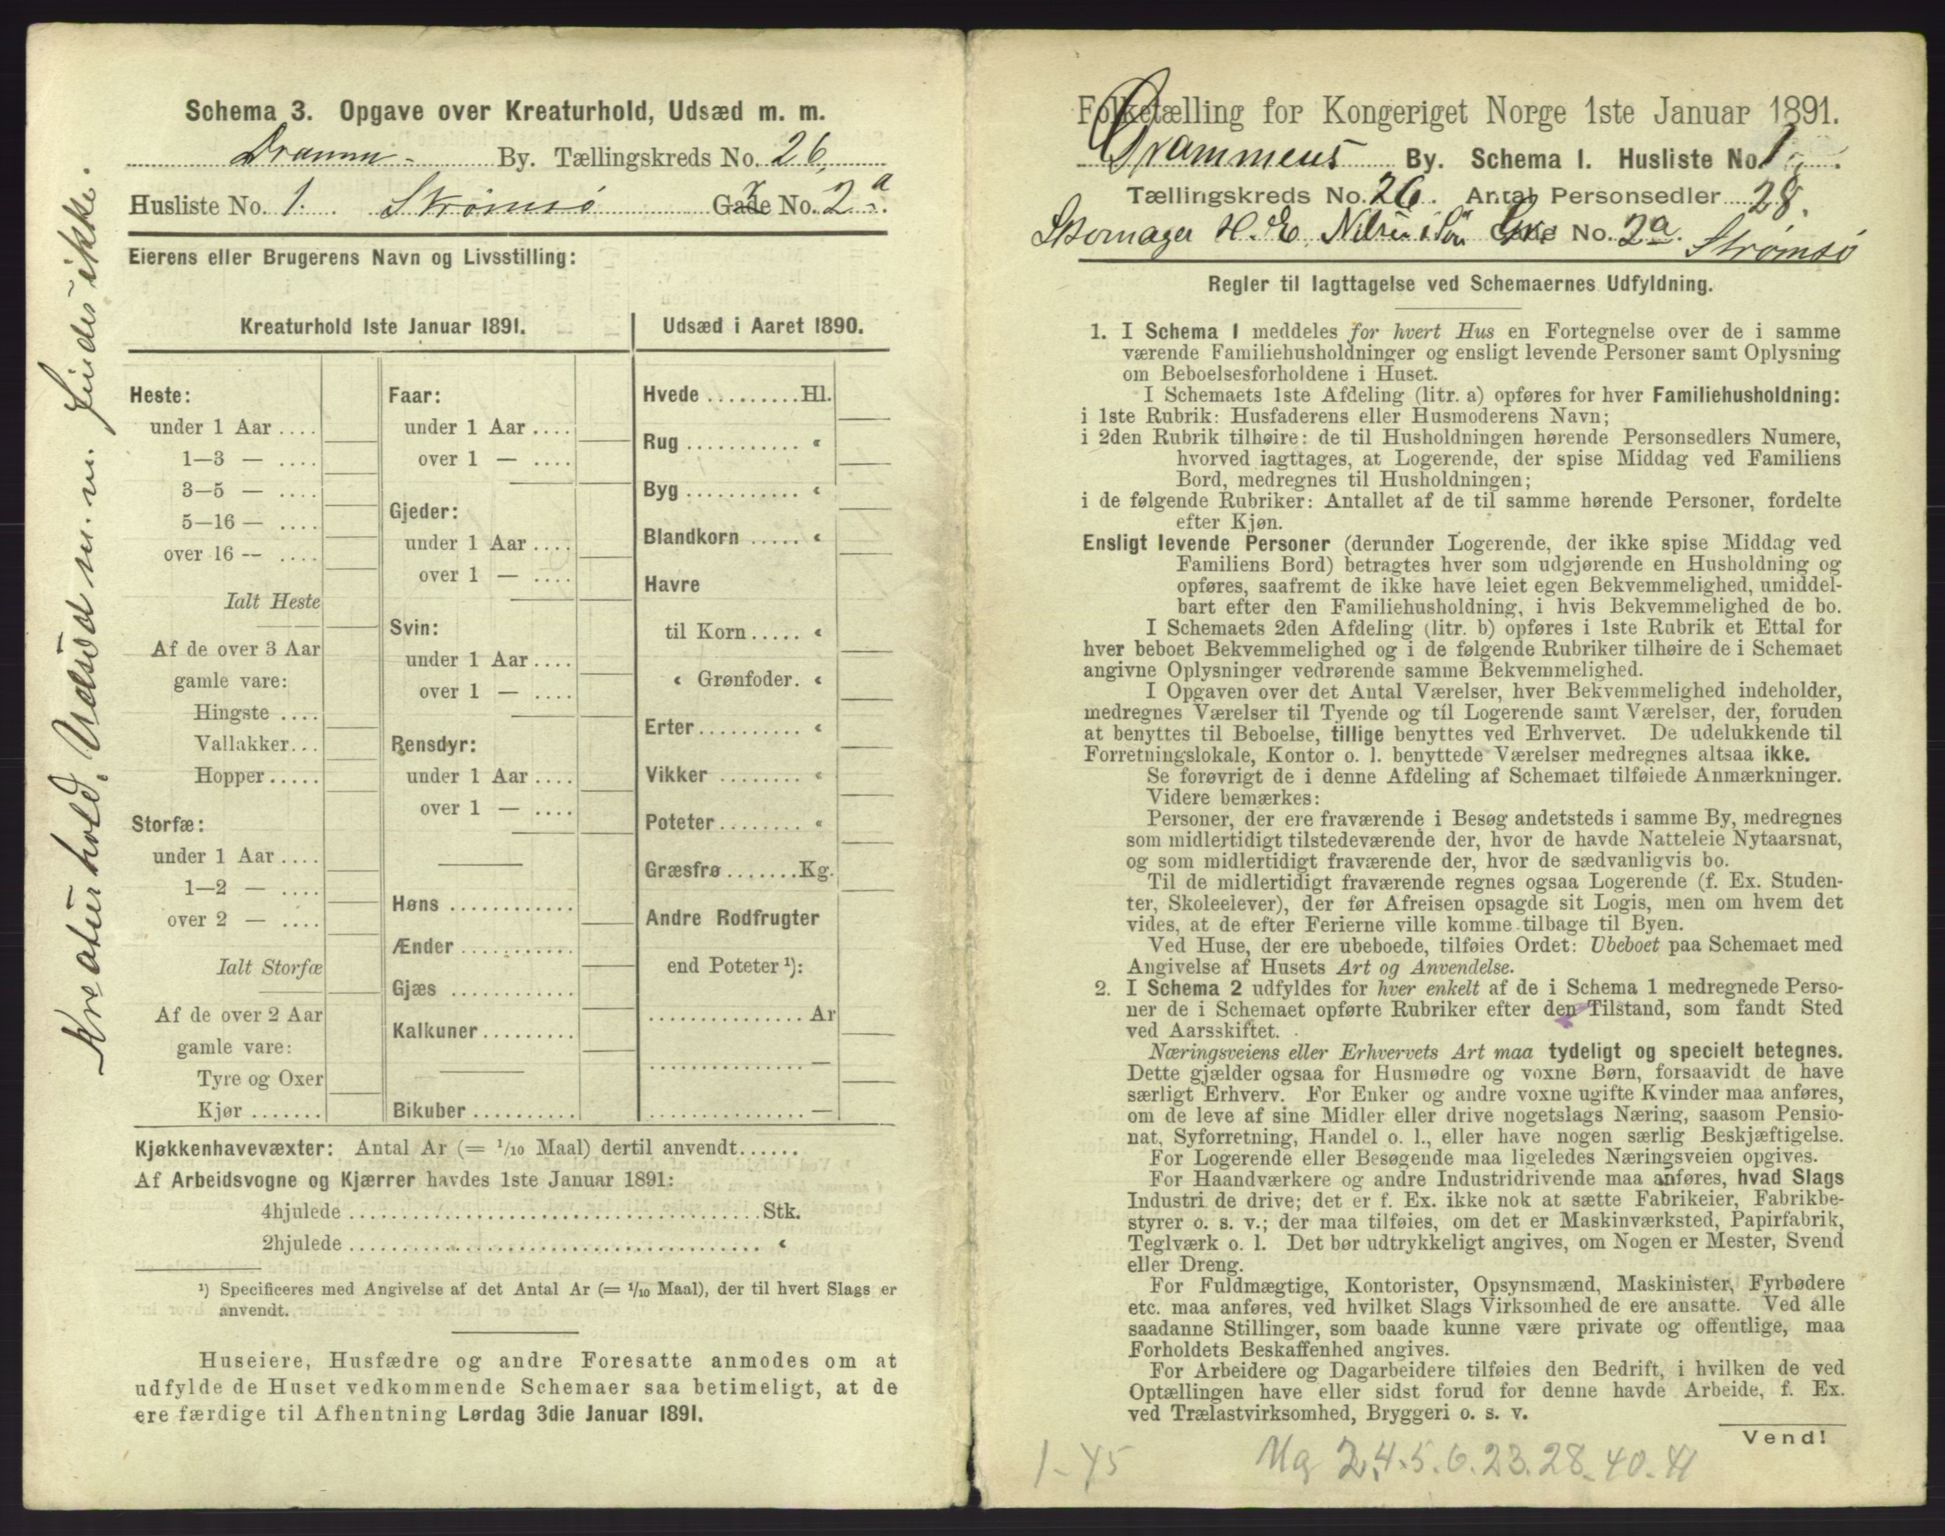 Schema 3. Opgave over Kreaturhold, Udsæd m. m.
Drammen By. Tællingskreds No. 26,
Husliste No. 1. Strømsø Gade No. 2a.
Eierens eller Brugerens Navn og Livsstilling:
Kreaturhold 1ste Januar 1891.
Heste:
under 1 Aar ....
1—3 — ....
3—5 — ....
5—16 — ....
over 16 — ....
Ialt Heste
Af de over 3 Aar
gamle vare:
Hingste ....
Vallakker...
Hopper.....
Storfæ:
under 1 Aar ....
1—2 — ....
over 2 — ....
Ialt Storfæ
Af de over 2 Aar
gamle vare:
Tyre og Oxer
Kjør .......
Faar:
under 1 Aar ....
over 1 — ....
Gjeder:
under 1 Aar ....
over 1 — ....
Svin:
under 1 Aar ....
over 1 — ....
Rensdyr:
under 1 Aar ....
over 1 — ....
Høns ...........
Ænder ..........
Gjæs ...........
Kalkuner ........
Bikuber .........
Udsæd i Aaret 1890.
Hvede .........Hl.
Rug ........... «
Byg ........... «
Blandkorn ..... «
Havre
til Korn ..... «
« Grønfoder. «
Erter .......... «
Vikker ......... «
Poteter ........ «
Græsfrø .......Kg.
Andre Rodfrugter
end Poteter ¹):
............... Ar
............... —
............... —
Kjøkkenhavevæxter: Antal Ar (= 1/10 Maal) dertil anvendt......
Af Arbeidsvogne og Kjærrer havdes 1ste Januar 1891:
4hjulede ........................................Stk.
2hjulede ........................................ «
¹) Specificeres med Angivelse af det Antal Ar (= 1/10 Maal), der til hvert Slags er
anvendt.
Huseiere, Husfædre og andre Foresatte anmodes om at
udfylde de Huset vedkommende Schemaer saa betimeligt, at de
ere færdige til Afhentning Lørdag 3die Januar 1891.
Kreaturhold, Udsæd m. m. findes ikke.
Folketælling for Kongeriget Norge 1ste Januar 1891.
Drammens By. Schema I. Husliste No. 1.
Tællingskreds No. 26. Antal Personsedler 28.
Skomager H. E. Nilsen Gade No. 2a. Strømsø
Regler til Iagttagelse ved Schemaernes Udfyldning.
1. I Schema I meddeles for hvert Hus en Fortegnelse over de i samme
værende Familiehusholdninger og ensligt levende Personer samt Oplysning
om Beboelsesforholdene i Huset.
I Schemaets 1ste Afdeling (litr. a) opføres for hver Familiehusholdning:
i 1ste Rubrik: Husfaderens eller Husmoderens Navn;
i 2den Rubrik tilhøire: de til Husholdningen hørende Personsedlers Numere,
hvorved iagttages, at Logerende, der spise Middag ved Familiens
Bord, medregnes til Husholdningen;
i de følgende Rubriker: Antallet af de til samme hørende Personer, fordelte
efter Kjøn.
Ensligt levende Personer (derunder Logerende, der ikke spise Middag ved
Familiens Bord) betragtes hver som udgjørende en Husholdning og
opføres, saafremt de ikke have leiet egen Bekvemmelighed, umiddel-
bart efter den Familiehusholdning, i hvis Bekvemmelighed de bo.
I Schemaets 2den Afdeling (litr. b) opføres i 1ste Rubrik et Ettal for
hver beboet Bekvemmelighed og i de følgende Rubriker tilhøire de i Schemaet
angivne Oplysninger vedrørende samme Bekvemmelighed.
I Opgaven over det Antal Værelser, hver Bekvemmelighed indeholder,
medregnes Værelser til Tyende og til Logerende samt Værelser, der, foruden
at benyttes til Beboelse, tillige benyttes ved Erhvervet. De udelukkende til
Forretningslokale, Kontor o. l. benyttede Værelser medregnes altsaa ikke.
Se forøvrigt de i denne Afdeling af Schemaet tilføiede Anmærkninger.
Videre bemærkes:
Personer, der ere fraværende i Besøg andetsteds i samme By, medregnes
som midlertidigt tilstedeværende der, hvor de havde Natteleie Nytaarsnat,
og som midlertidigt fraværende der, hvor de sædvanligvis bo.
Til de midlertidigt fraværende regnes ogsaa Logerende (f. Ex. Studen-
ter, Skoleelever), der før Afreisen opsagde sit Logis, men om hvem det
vides, at de efter Ferierne ville komme tilbage til Byen.
Ved Huse, der ere ubeboede, tilføies Ordet: Ubeboet paa Schemaet med
Angivelse af Husets Art og Anvendelse.
2. I Schema 2 udfyldes for hver enkelt af de i Schema 1 medregnede Perso-
ner de i Schemaet opførte Rubriker efter den Tilstand, som fandt Sted
ved Aarsskiftet.
Næringsveiens eller Erhvervets Art maa tydeligt og specielt betegnes.
Dette gjælder ogsaa for Husmødre og voxne Børn, forsaavidt de have
særligt Erhverv. For Enker og andre voxne ugifte Kvinder maa anføres,
om de leve af sine Midler eller drive nogetslags Næring, saasom Pensio-
nat, Syforretning, Handel o. l., eller have nogen særlig Beskjæftigelse.
For Logerende eller Besøgende maa ligeledes Næringsveien opgives.
For Haandværkere og andre Industridrivende maa anføres, hvad Slags
Industri de drive; det er f. Ex. ikke nok at sætte Fabrikeier, Fabrikbe-
styrer o. s. v.; der maa tilføies, om det er Maskinværksted, Papirfabrik,
Teglværk o. l. Det bør udtrykkeligt angives, om Nogen er Mester, Svend
eller Dreng.
For Fuldmægtige, Kontorister, Opsynsmænd, Maskinister, Fyrbødere
etc. maa anføres, ved hvilket Slags Virksomhed de ere ansatte. Ved alle
saadanne Stillinger, som baade kunne være private og offentlige, maa
Forholdets Beskaffenhed angives.
For Arbeidere og Dagarbeidere tilføies den Bedrift, i hvilken de ved
Optællingen have eller sidst forud for denne havde Arbeide, f. Ex.
ved Trælastvirksomhed, Bryggeri o. s. v.
Vend!
1-45 Mg 2.4.5.6.23.28.40.41